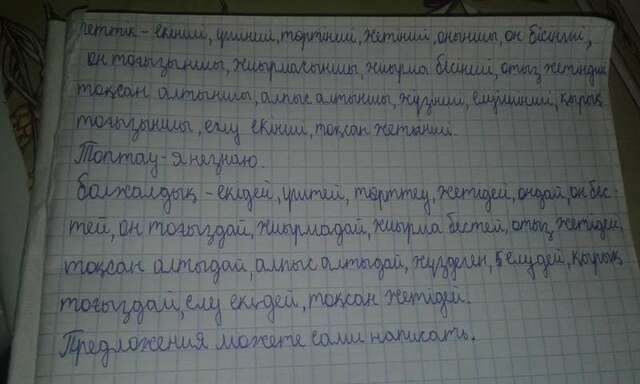 реттік - екінші, үшінші, төртінші, жетінші, оныншы, он бесінші,
он тоғызыншы, жиырмасыншы, жиырма бесінші, отыз жетінші
тоқсан алтыншы, алпыс алтыншы, жүзінші, елуінші, қырық
тоғызыншы, елу екінші, тоқсан жетінші.
Топтау - я незнаю.
Болжалдық - екідей, үштей, төрттеу, жетідей, ондай, он бес-
тей, он тоғыздай, жиырмадай, жиырма бестей, отыз жетідей,
тоқсан алтыдай, алпыс алтыдай, жүздеген, елудей, қырық
тоғыздай, елу екідей, тоқсан жетідей.
Предложения можете сами написать.